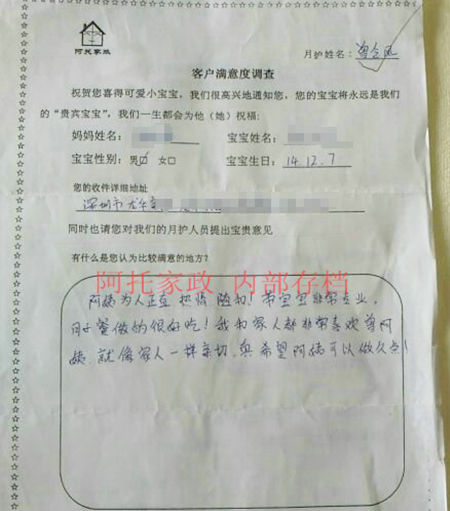 阿托家政
月护姓名：曾会凤
客户满意度调查
祝贺您喜得可爱小宝宝。我们很高兴地通知您，您的宝宝将永远是我们
的“贵宾宝宝”，我们一生都会为他（她）祝福：
妈妈姓名：
宝宝姓名：
宝宝性别：男☑ 女□
宝宝生日：14.12.7
您的收件详细地址
深圳市龙华
同时也请您对我们的月护人员提出宝贵意见
有什么是您认为比较满意的地方？
阿托家政 内部存档
阿姨为人正直 热情 随和！带宝宝非常专业，
月子餐做的很好吃！我和家人都非常喜欢曾阿
姨，就像家人一样亲切，真希望阿姨可以做久点！